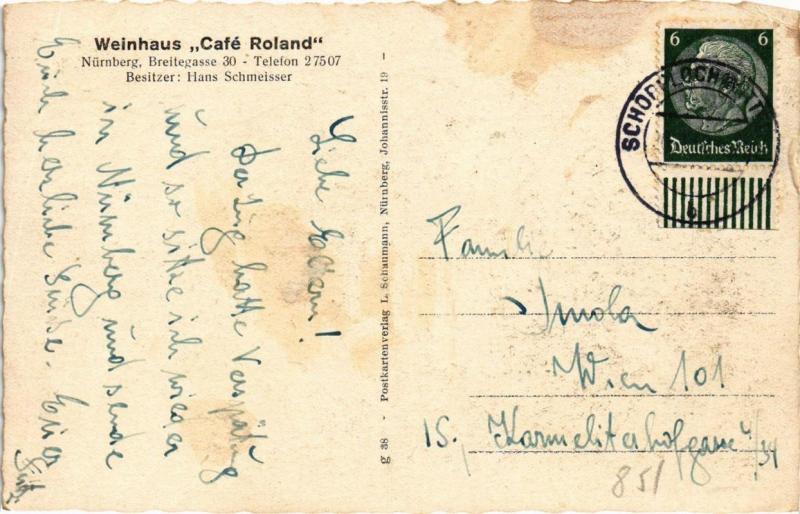 Weinhaus „Café Roland"
Nürnberg, Breitegasse 30 - Telefon 27507
Besitzer: Hans Schmeisser
Liebe Eltern!
Der Zug hatte Verspätung
und so sitze ich wieder
in Nürnberg und sende
Euch herzliche Grüße. Euer
Fritz
g 38 - Postkartenverlag L. Schaumann, Nürnberg, Johannisstr. 19 -
6 6
Deutsches Reich
SCHOPFLOCH
b
Familie
Smola
Wien 101
15. Karmeliterhofgasse
851